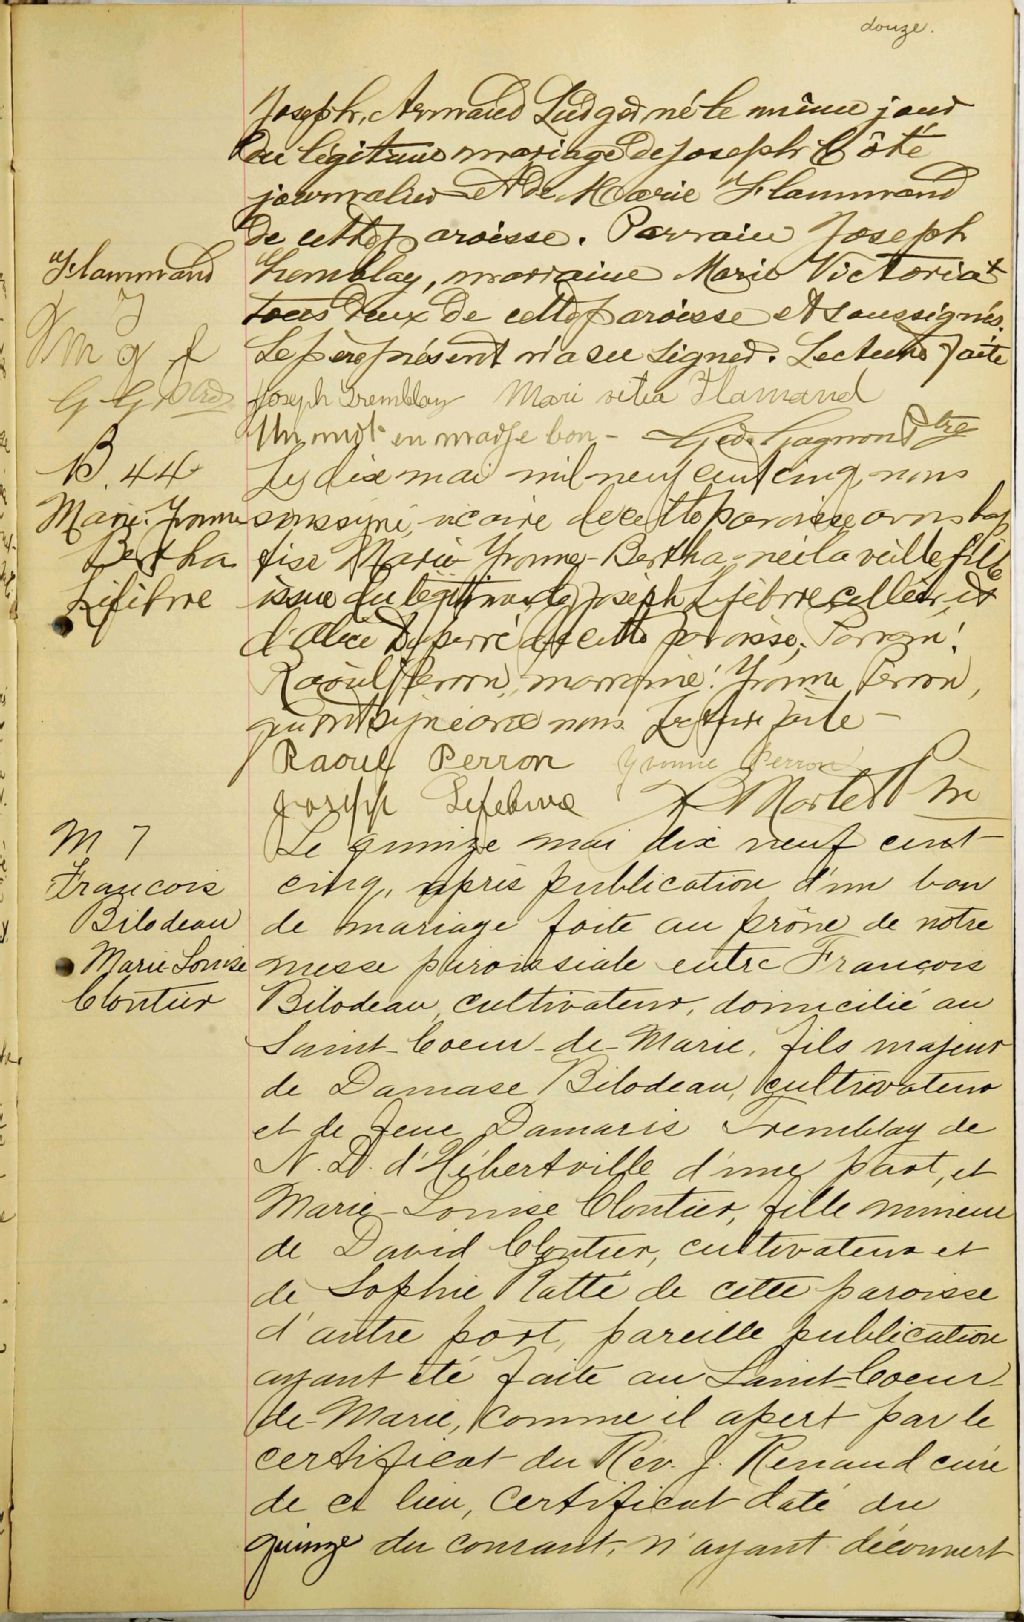 douze.
Joseph, Armand Ludger né le même jour
du légitime mariage de Joseph Côté
journalier et de Marie Flammand
de cette paroisse. Parrain Joseph
Flammand
Tremblay, marraine Marie Victoria x
tous deux de cette paroisse et soussignés.
J
V M g f
Le père présent n'a su signer. Lecture faite
G G Ptre
Joseph Tremblay Mari vitia Flamand
Un mot en marge bon - Géd. Gagnon Ptre
B. 44
Le dix mai mil neuf cent cinq nous
Marie. Yvonne
soussigné, vicaire de cette paroisse avons bap
Bertha
tisé Marie Yvonne-Bertha née la veille fille
Lefebvre
issue du légitime de Joseph Lefebvre sellier, et
d'Alice Duperré de cette paroisse, Parrain:
Raoul Perron, marraine: Yvonne Perron,
qui ont signé avec nous. Lecture faite -
Raoul Perron Yvonne Perron
Joseph Lefebvre Martel Ptre
M 7
Le quinze mai dix neuf cent
François
cinq, après publication d'un ban
Bilodeau
de mariage faite au prône de notre
Marie Louise
messe paroissiale entre François
Cloutier
Bilodeau, cultivateur, domicilié au
Saint-Coeur-de-Marie, fils majeur
de Damase Bilodeau, cultivateur
et de feue Damaris Tremblay de
N. D. d'Hébertville d'une part, et
Marie-Louise Cloutier, fille mineure
de David Cloutier, cultivateur et
de Sophie Ratté de cette paroisse
d'autre part, pareille publication
ayant été faite au Saint-Coeur-
de-Marie, comme il apert par le
certificat du Rév. J. Renaud curé
de ce lieu, certificat daté du
quinze du courant, n'ayant découvert